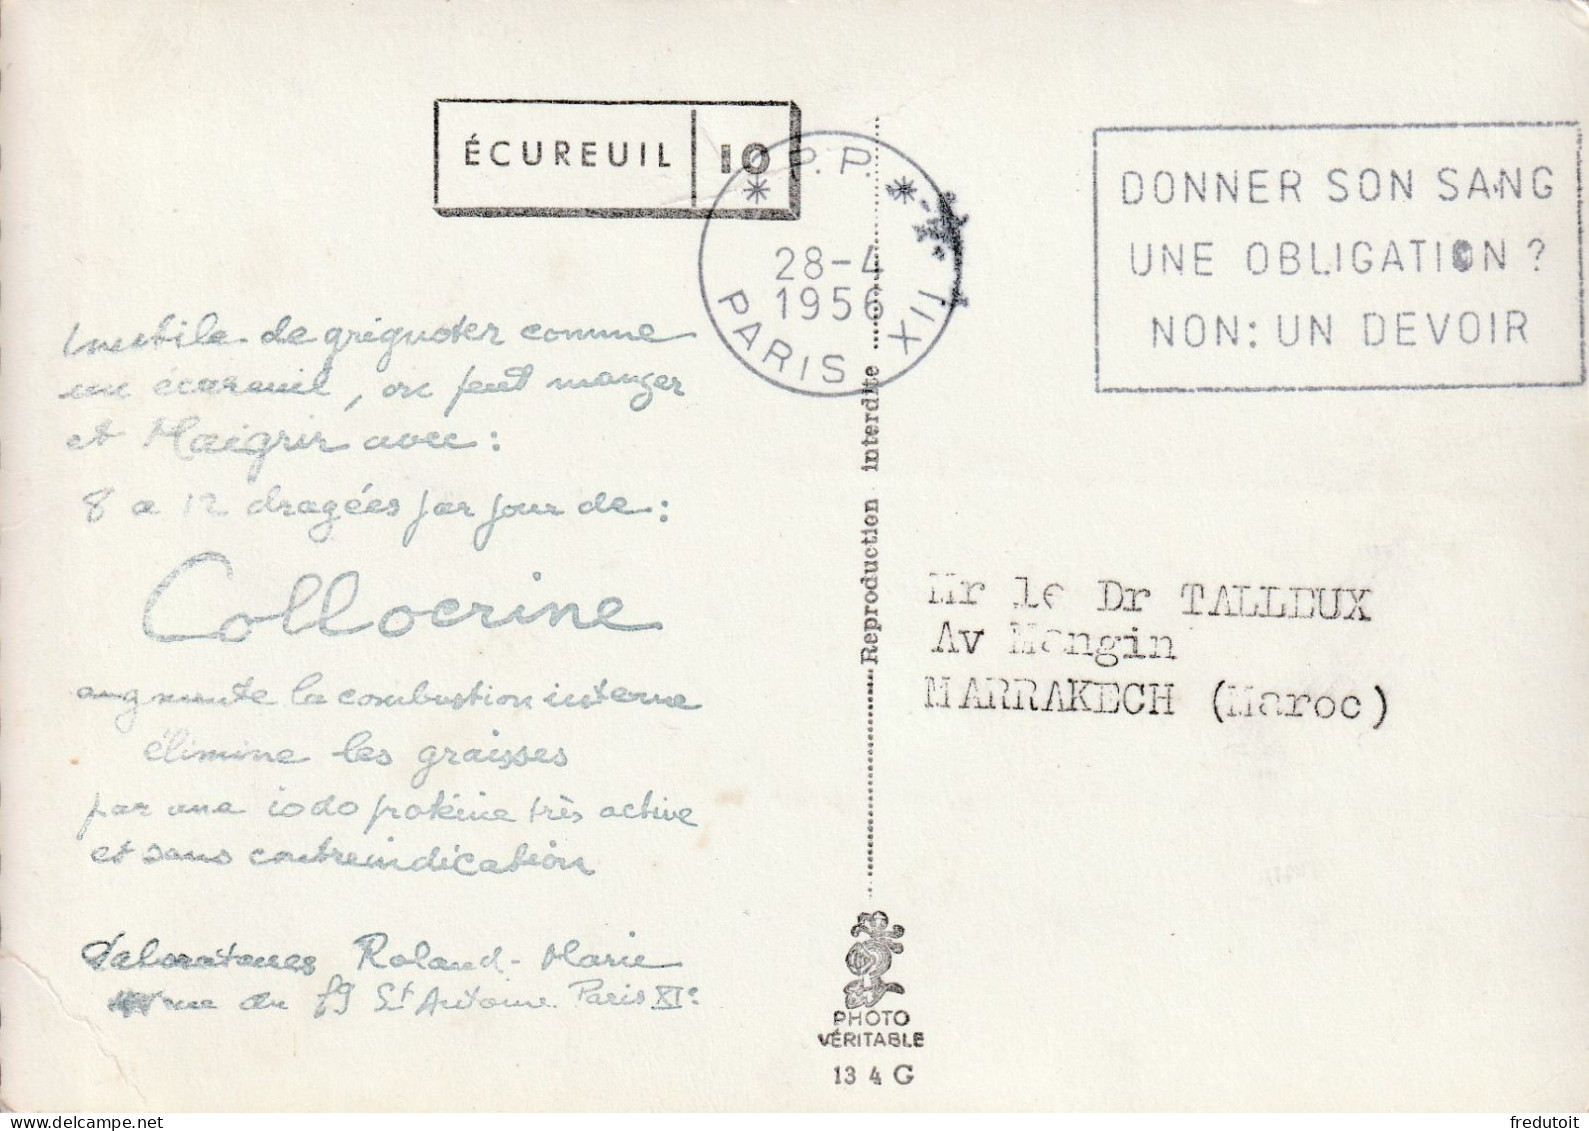 ÉCUREUIL 10
P.P.
28-4
1956
PARIS XII
DONNER SON SANG
UNE OBLIGATION ?
NON: UN DEVOIR
Inutile de grignoter comme
un écureuil, on peut manger
et Maigrir avec:
8 a 12 dragées par jour de:
Collocrine
augmente la combustion interne
élimine les graisses
par une iodo protéine très active
et sans contreindication
Laboratoires Roland-Marie
rue du fg St Antoine Paris XIe
Reproduction interdite
Mr le Dr TALLEUX
Av Mangin
MARRAKECH (Maroc)
PHOTO
VÉRITABLE
13 4 G
www.delcampe.net
fredutoit